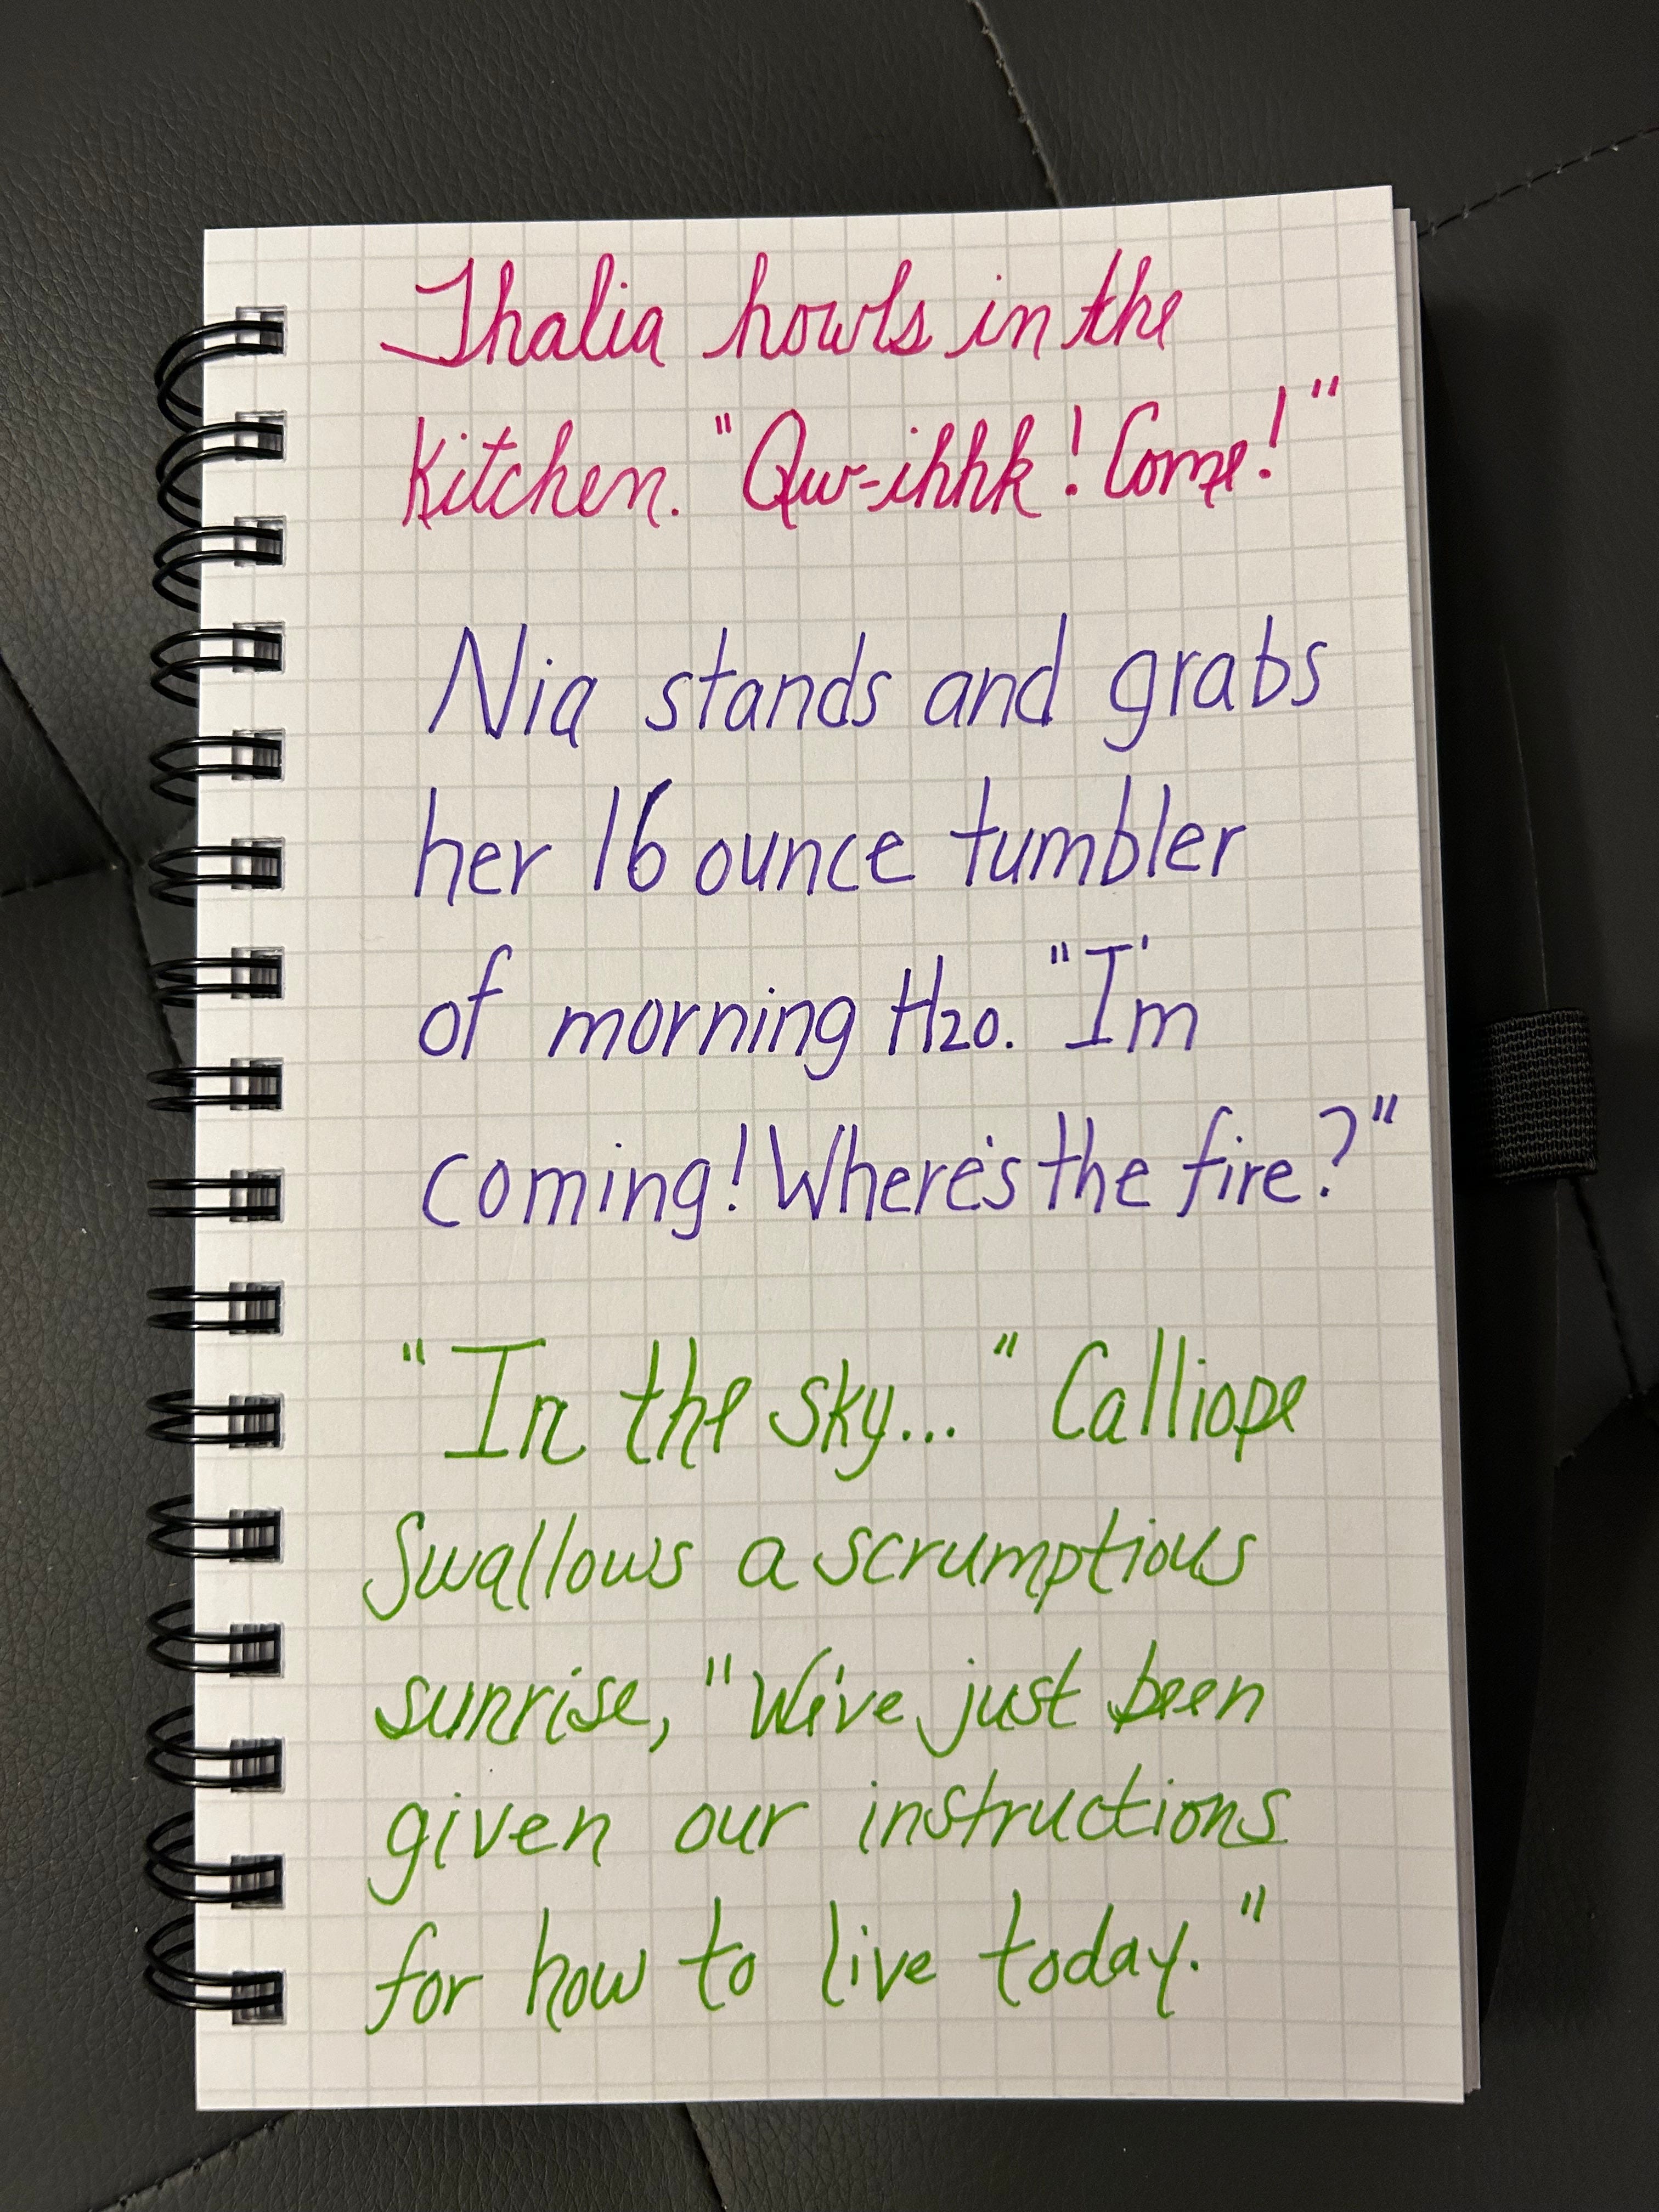 Thalia howls in the
Kitchen. "Qw-ihhk! Come!"
Nia stands and grabs
her 16 ounce tumbler
of morning H2O. "I'm
coming! Where's the fire?"
"In the sky..." Calliope
swallows a scrumptious
sunrise, "We've just been
given our instructions
for how to live today."